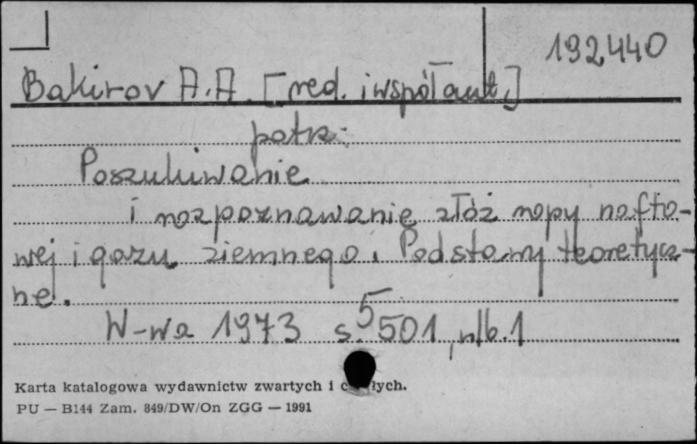 192440
Bakirov A.A. [red. i współaut.]
patrz:
Poszukiwanie
i rozpoznawanie złóż ropy nafto-
wej i gazu ziemnego. Podstawy teoretycz-
ne.
W-wa 1973 s. 501, nlb. 1
5
Karta katalogowa wydawnictw zwartych i
PU — B144 Zam. 849/DW/On ZGG — 1991